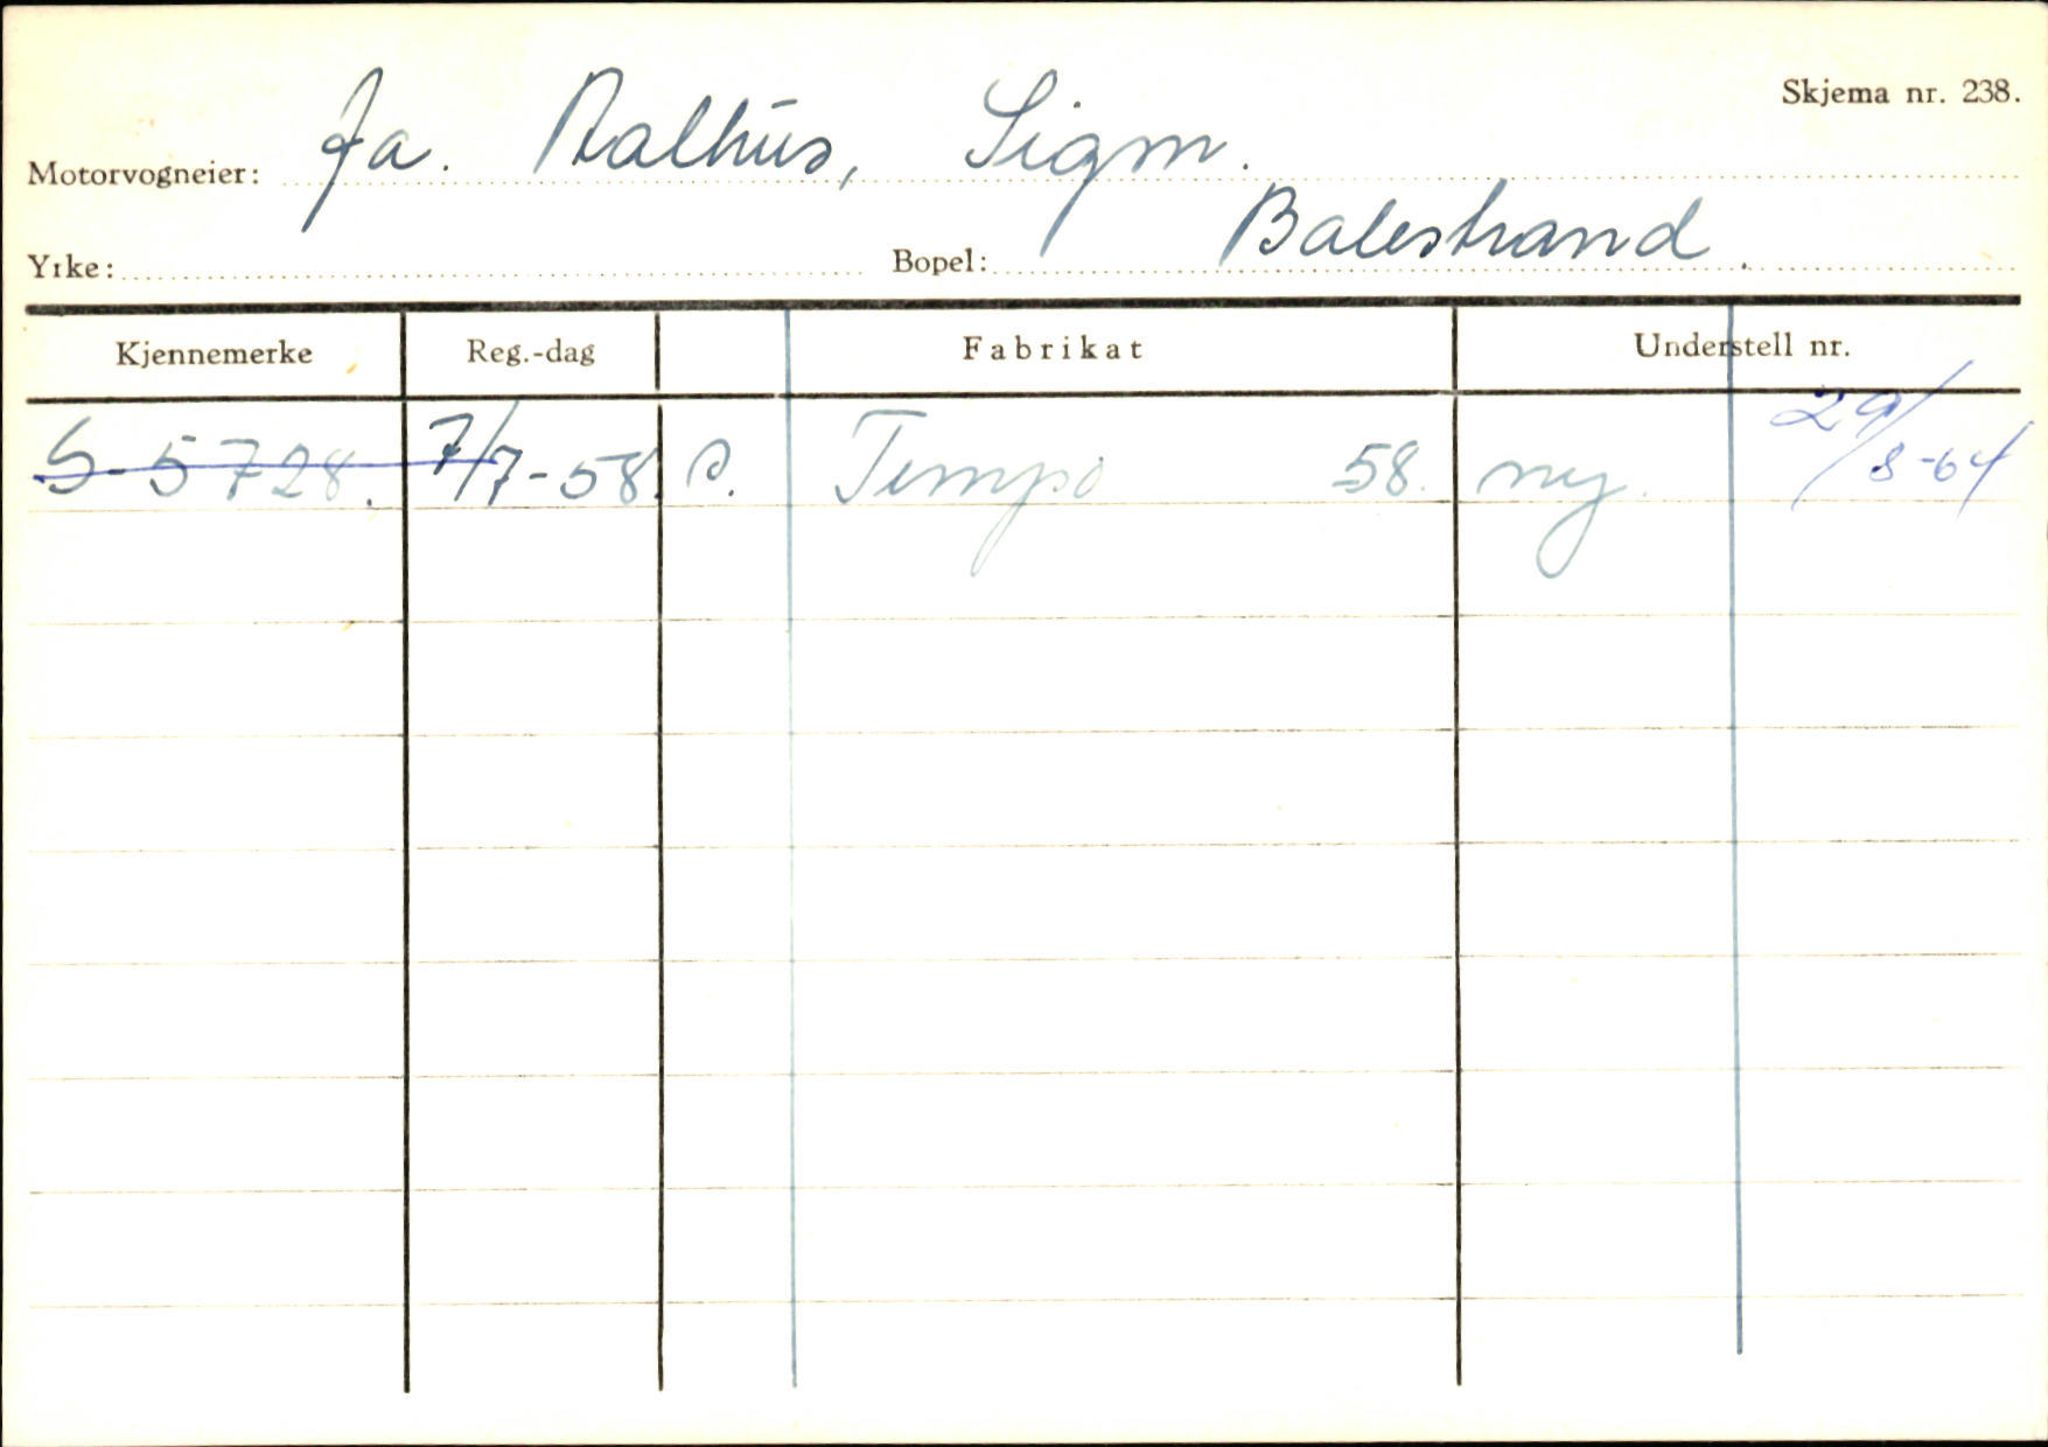 Skjema nr. 238.
Motorvogneier: fa. Aalhus, Sigm.
Yrke: Bopel: Balestrand.
Kjennemerke Reg.-dag Fabrikat Understell nr.
S-5728. 7/7-58. P. Tempo 58. ny. 29/8-64